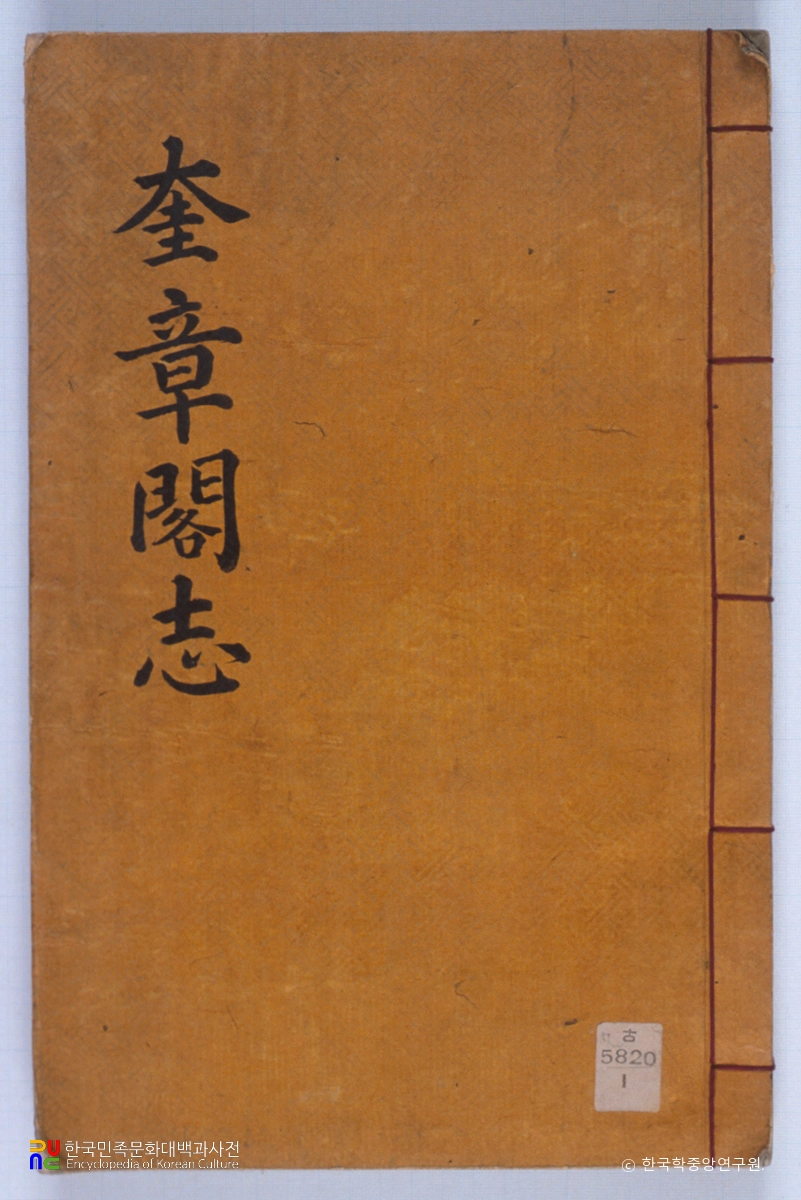 奎章閣志
古
5820
1
한국민족문화대백과사전
Encyclopedia of Korean Culture
© 한국학중앙연구원.